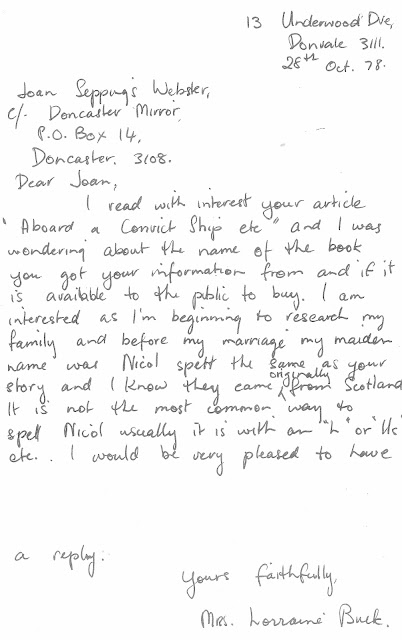 13 Underwood Dve,
Donvale 3111.
28th Oct. 78.
Joan Seppings Webster,
c/. Doncaster Mirror,
P.O. Box 14,
Doncaster. 3108.
Dear Joan,
I read with interest your article
"Aboard a Convict Ship etc" and I was
wondering about the name of the book
you got your information from and if it
is available to the public to buy. I am
interested as I'm beginning to research my
family and before my marriage my maiden
name was Nicol spelt the same as your
story and I know they came originally from Scotland
It is not the most common way to
spell Nicol usually it is with an "h" or "lls"
etc.. I would be very pleased to have
a reply.
Yours faithfully,
Mrs. Lorraine Buck.